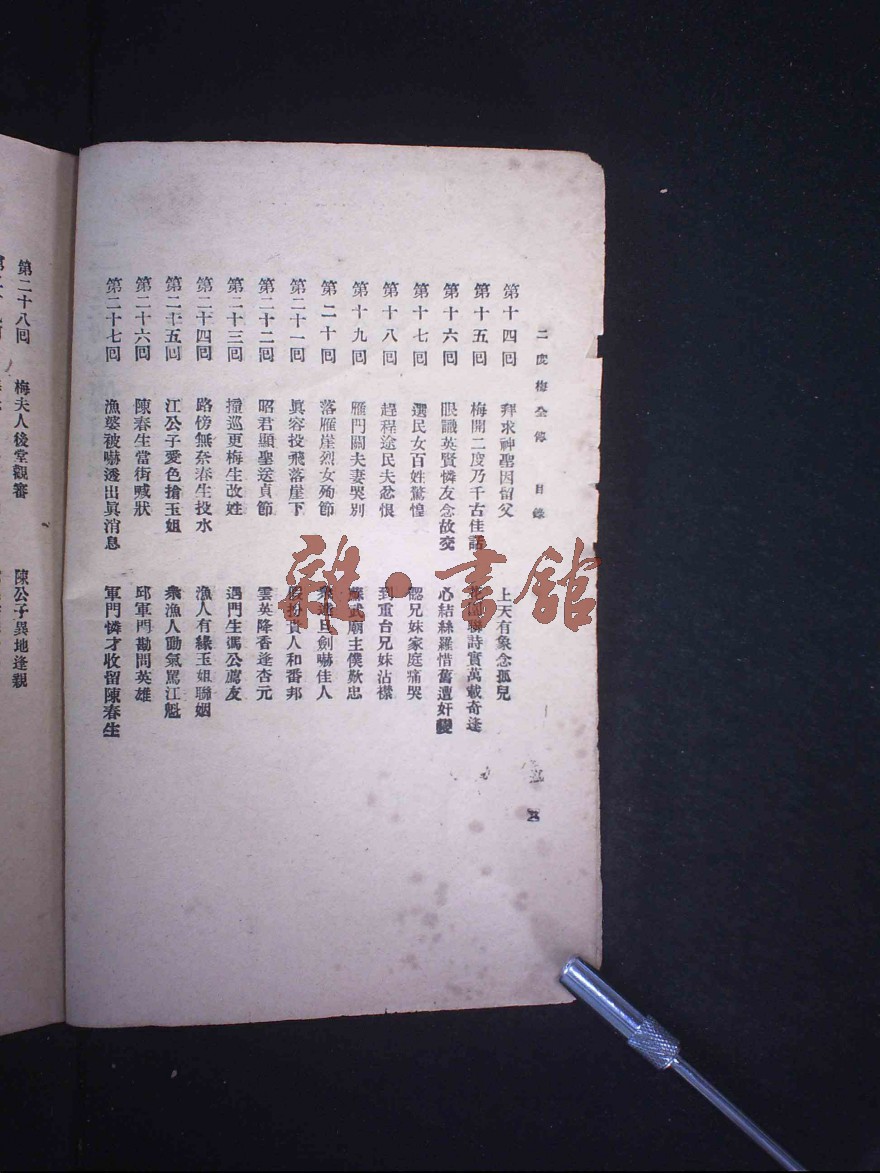 二度梅全傳　目錄
第十四回　拜求神聖因留父　上天有象念孤兒
第十五回　梅開二度乃千古佳話　聯詩實萬載奇逢
第十六回　眼識英賢憐友念故交　必結絲羅惜舊遭奸變
第十七回　選民女百姓驚惶　罷兄妹家庭痛哭
第十八回　趕程途民夫忿恨　到重台兄妹沾襟
第十九回　雁門關夫妻哭別　蘇武廟主僕歎忠
第二十回　落雁崖烈女殉節　劍嚇佳人
第二十一回　眞容投飛落崖下　貴人和番邦
第二十二回　昭君顯聖送貞節　雲英降香逢杏元
第二十三回　撞巡更梅生改姓　遇門生馮公薦友
第二十四回　路傍無奈春生投水　漁人有緣玉姐聯姻
第二十五回　江公子愛色搶玉姐　衆漁人動氣罵江魁
第二十六回　陳春生當街喊狀　邱軍門勘問英雄
第二十七回　漁婆被嚇透出眞消息　軍門憐才收留陳春生
第二十八回　梅夫人後堂觀審　陳公子異地逢親
雜·書館